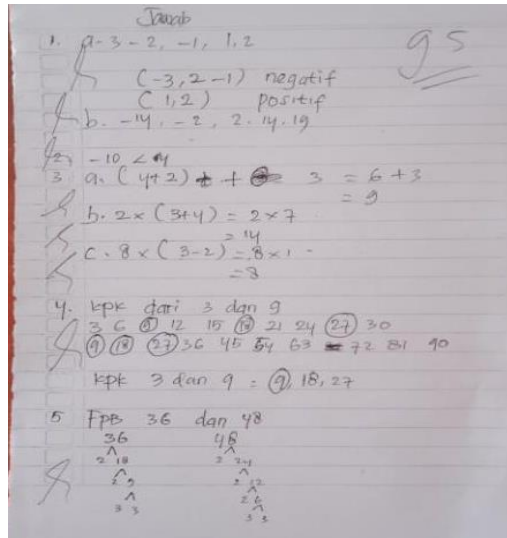 Jawab
95
1. a -3 - 2, -1, 1, 2
(-3, 2 -1) negatif
( 1, 2 ) positif
b. -14. -2, 2. 14. 19
2. -10 < 4
3 a. ( 4+2 ) + 3 = 6 + 3
= 9
b. 2 x ( 3+4 ) = 2 x 7
= 14
c. 8 x ( 3-2 ) = 8 x 1
= 8
4. kpk dari 3 dan 9
3 6 9 12 15 18 21 24 27 30
9 18 27 36 45 54 63 72 81 90
kpk 3 dan 9 = 9, 18, 27
5 FPB 36 dan 48
36 48
2 18 2 24
2 9 2 12
3 3 2 6
3 3